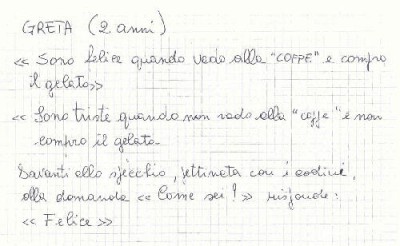 GRETA (2 anni)
<< Sono felice quando vado alla "COFFE" e compro
il gelato>>
<< Sono triste quando non vado alla "coffe" e non
compro il gelato.
Davanti allo specchio, pettinata con i codini,
alla domanda << Come sei? >> risponde:
<< Felice >>